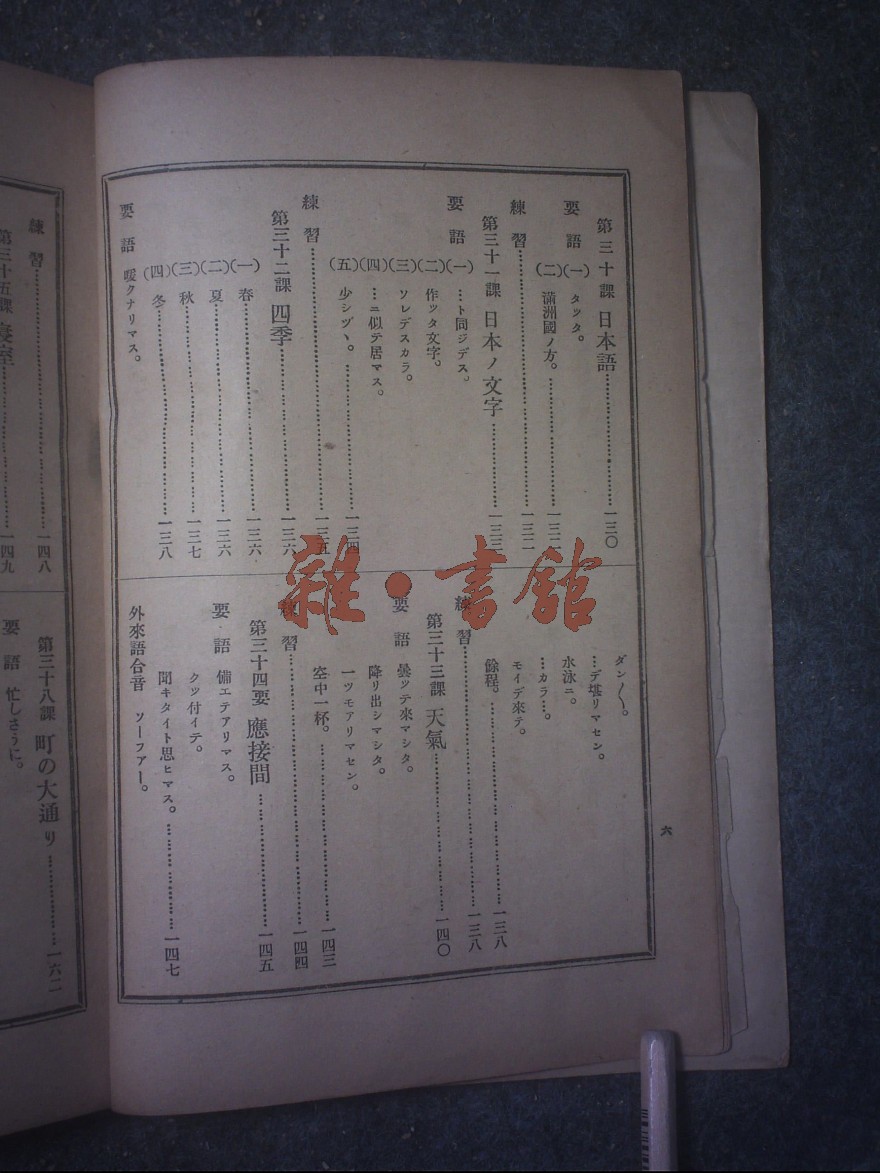 六
第三十課 日本語……一三〇
要語 (一) タッタ。
(二) 滿洲國ノ方。……一三二
練習……一三二
第三十一課 日本ノ文字……一三三
要語 (一) …ト同ジデス。
(二) 作ッタ文字。
(三) ソレデスカラ。
(四) …ニ似テ居マス。
(五) 少シヅヽ。……一三四
練習……一三五
第三十二課 四季……一三六
(一) 春……一三六
(二) 夏……一三六
(三) 秋……一三七
(四) 冬……一三八
要語 暖クナリマス。
ダン〱。
…デ堪リマセン。
水泳ニ。
…カラ…。
モイデ來テ。
餘程。……一三八
練習……一三八
第三十三課 天氣……一四〇
要語 曇ッテ來マシタ。
降リ出シマシタ。
一ツモアリマセン。
空中一杯。……一四三
練習……一四四
第三十四要 應接間……一四五
要語 備エテアリマス。
クッ付イテ。
聞キタイト思ヒマス。……一四七
外來語台音 ソーファー。
練習……一四八
第三十五課 寢室……一四九
第三十八課 町の大通り……一六二
要語 忙しさうに。
雜·書館